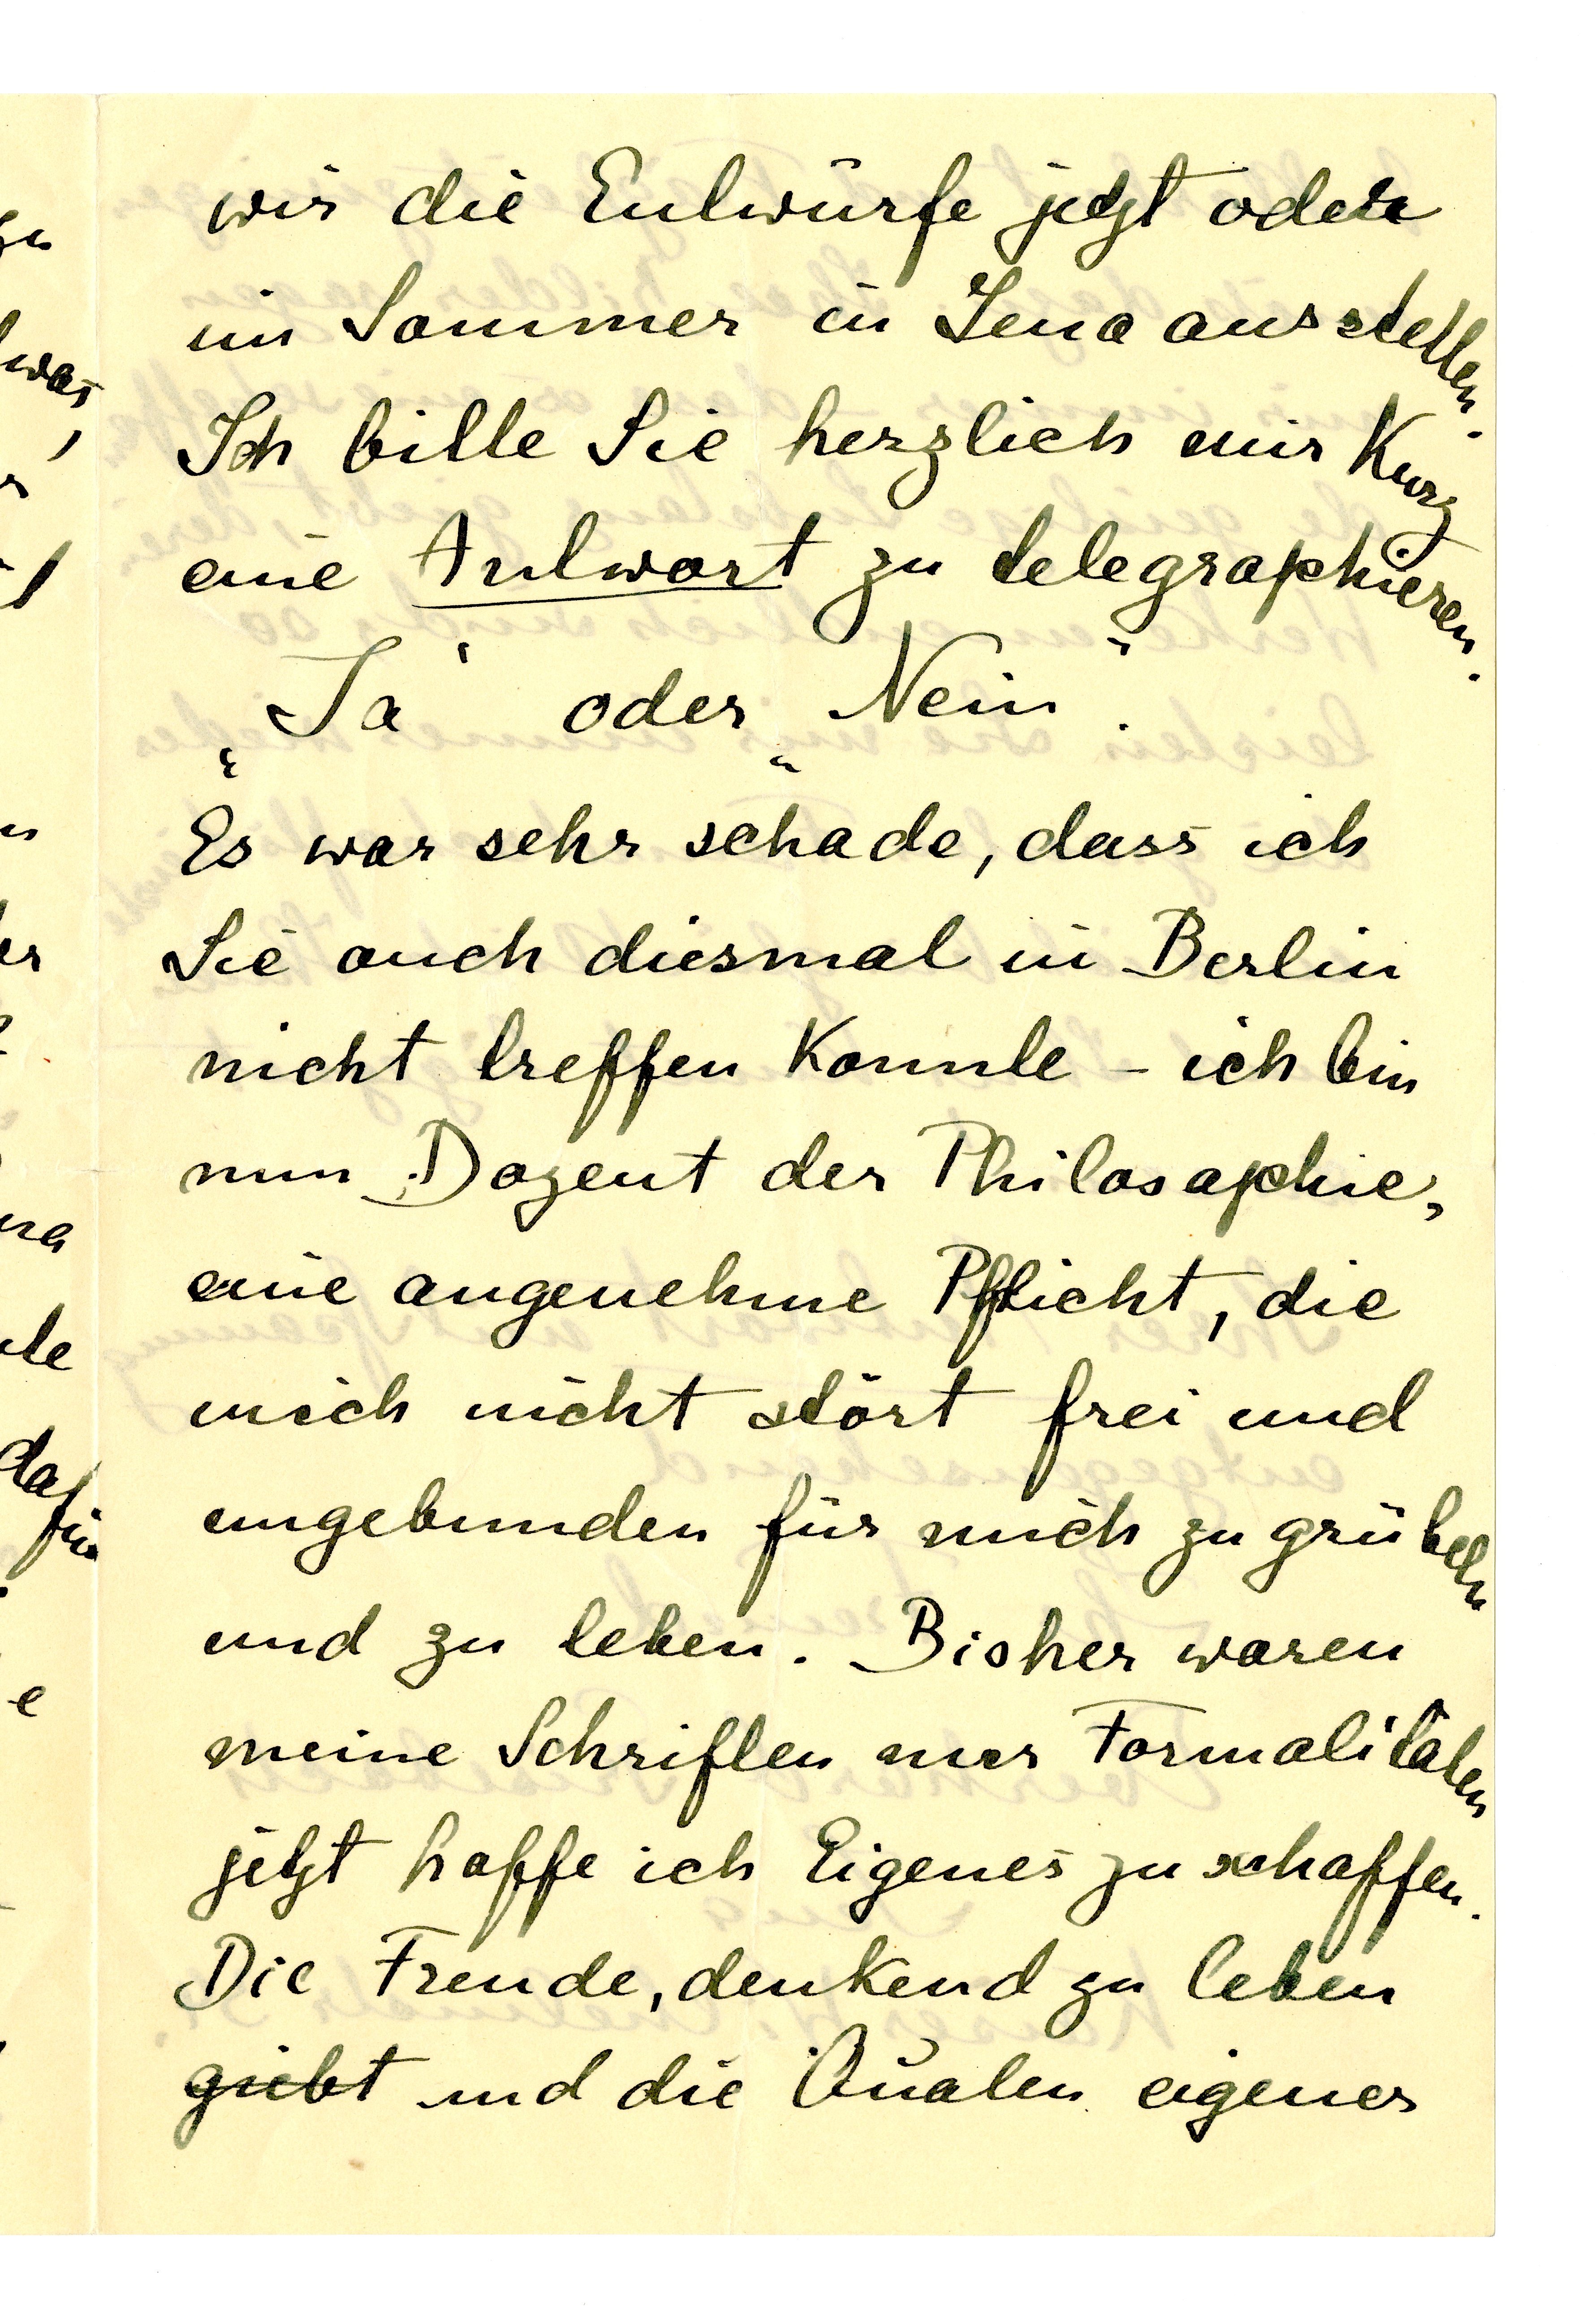 wir die Entwürfe jetzt oder
im Sommer in Jena ausstellen.
Ich bitte Sie herzlich mir kurz
eine Antwort zu telegraphieren.
„Ja“ oder „Nein“.
Es war sehr schade, dass ich
Sie auch diesmal in Berlin
nicht treffen konnte – ich bin
nun Dozent der Philosophie,
eine angenehme Pflicht, die
mich nicht stört frei und
ungebunden für mich zu grübeln
und zu leben. Bisher waren
meine Schriften nur Formalitäten
jetzt hoffe ich Eigenes zu schaffen.
Die Freude, denkend zu leben
giebt und die Qualen eigener